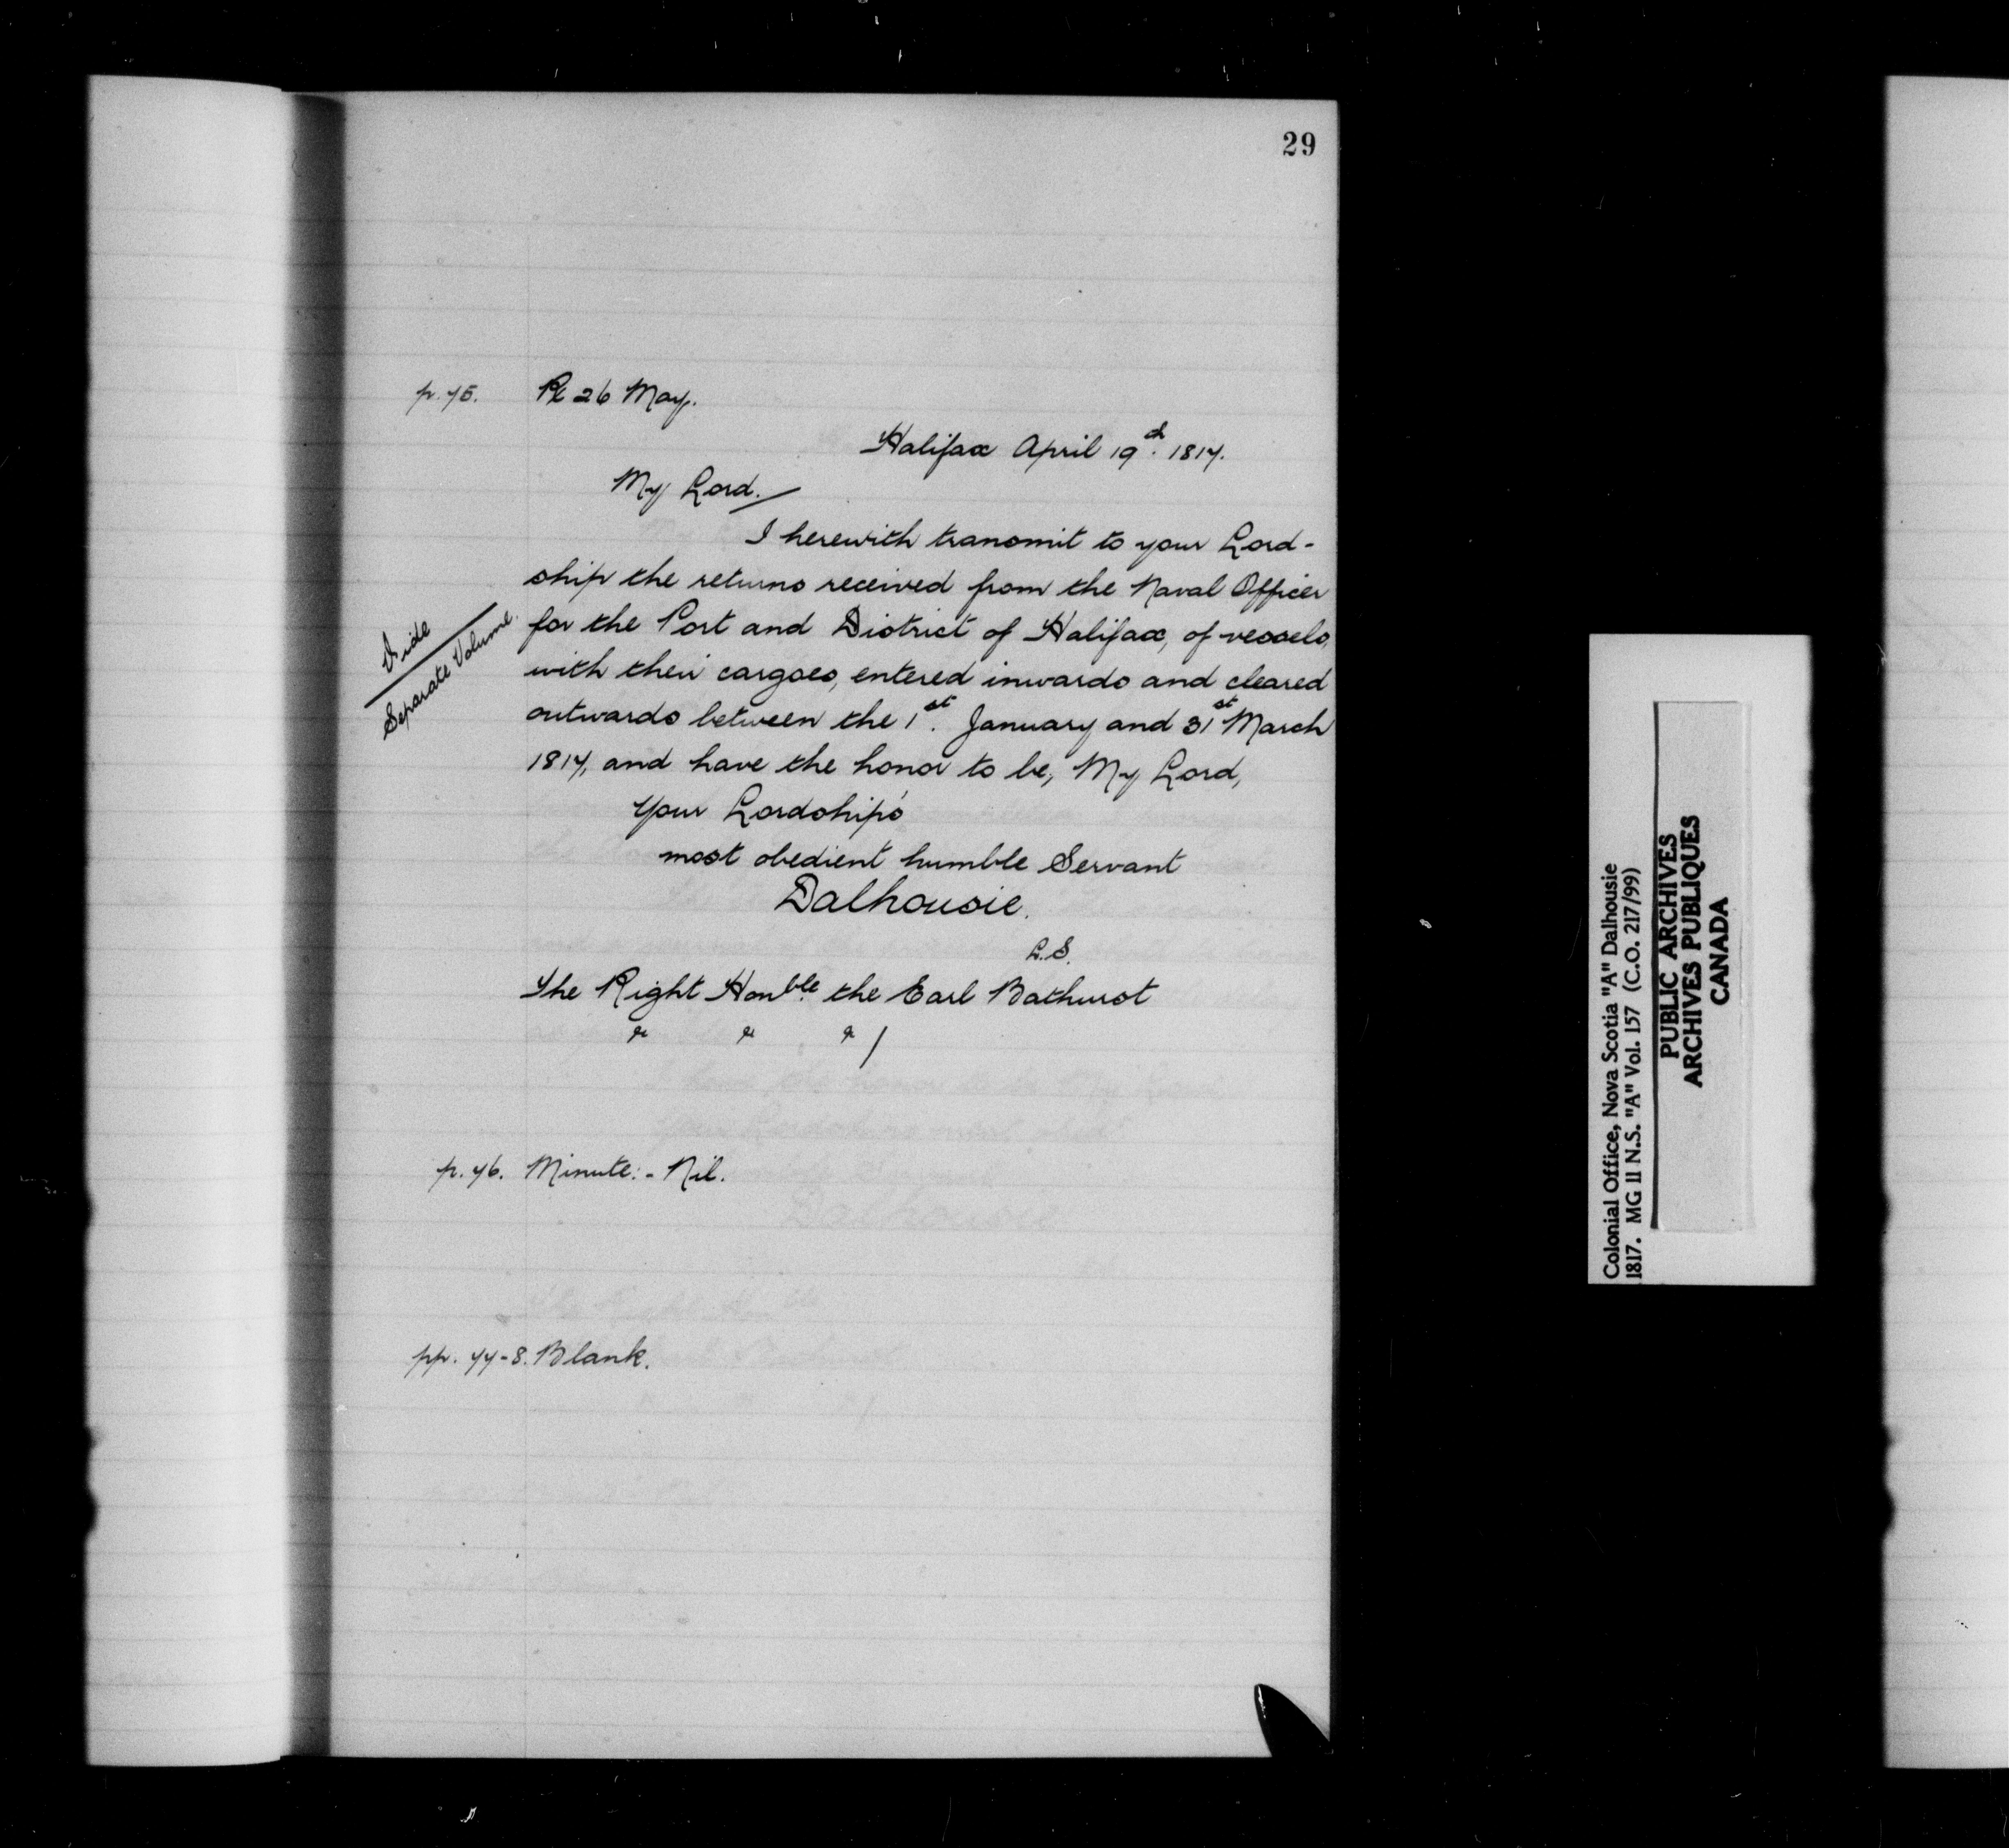 29
p. 75. Rx 26 May.
Halifax April 19th. 1817.
My Lord.
I herewith transmit to your Lord-
ship the returns received from the Naval Officer
for the Port and District of Halifax, of vessels,
with their cargoes, entered inwards and cleared
outwards between the 1st. January and 31st March
1817, and have the honor to be, My Lord,
Your Lordship's
most obedient humble Servant
Dalhousie.
L.S.
The Right Honble. the Earl Bathurst
&c &c &c/
Vide
Separate Volume.
p. 76. Minute:- Nil.
pp. 77-8. Blank.
Colonial Office, Nova Scotia "A" Dalhousie
1817. MG 11 N.S. "A" Vol. 157 (C.O. 217/99)
PUBLIC ARCHIVES
ARCHIVES PUBLIQUES
CANADA